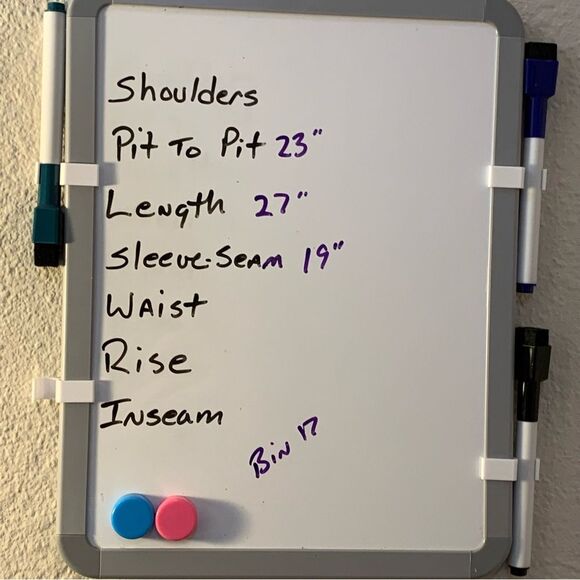 Shoulders
Pit To Pit 23"
Length 27"
Sleeve-Seam 19"
Waist
Rise
Inseam
Bin 17